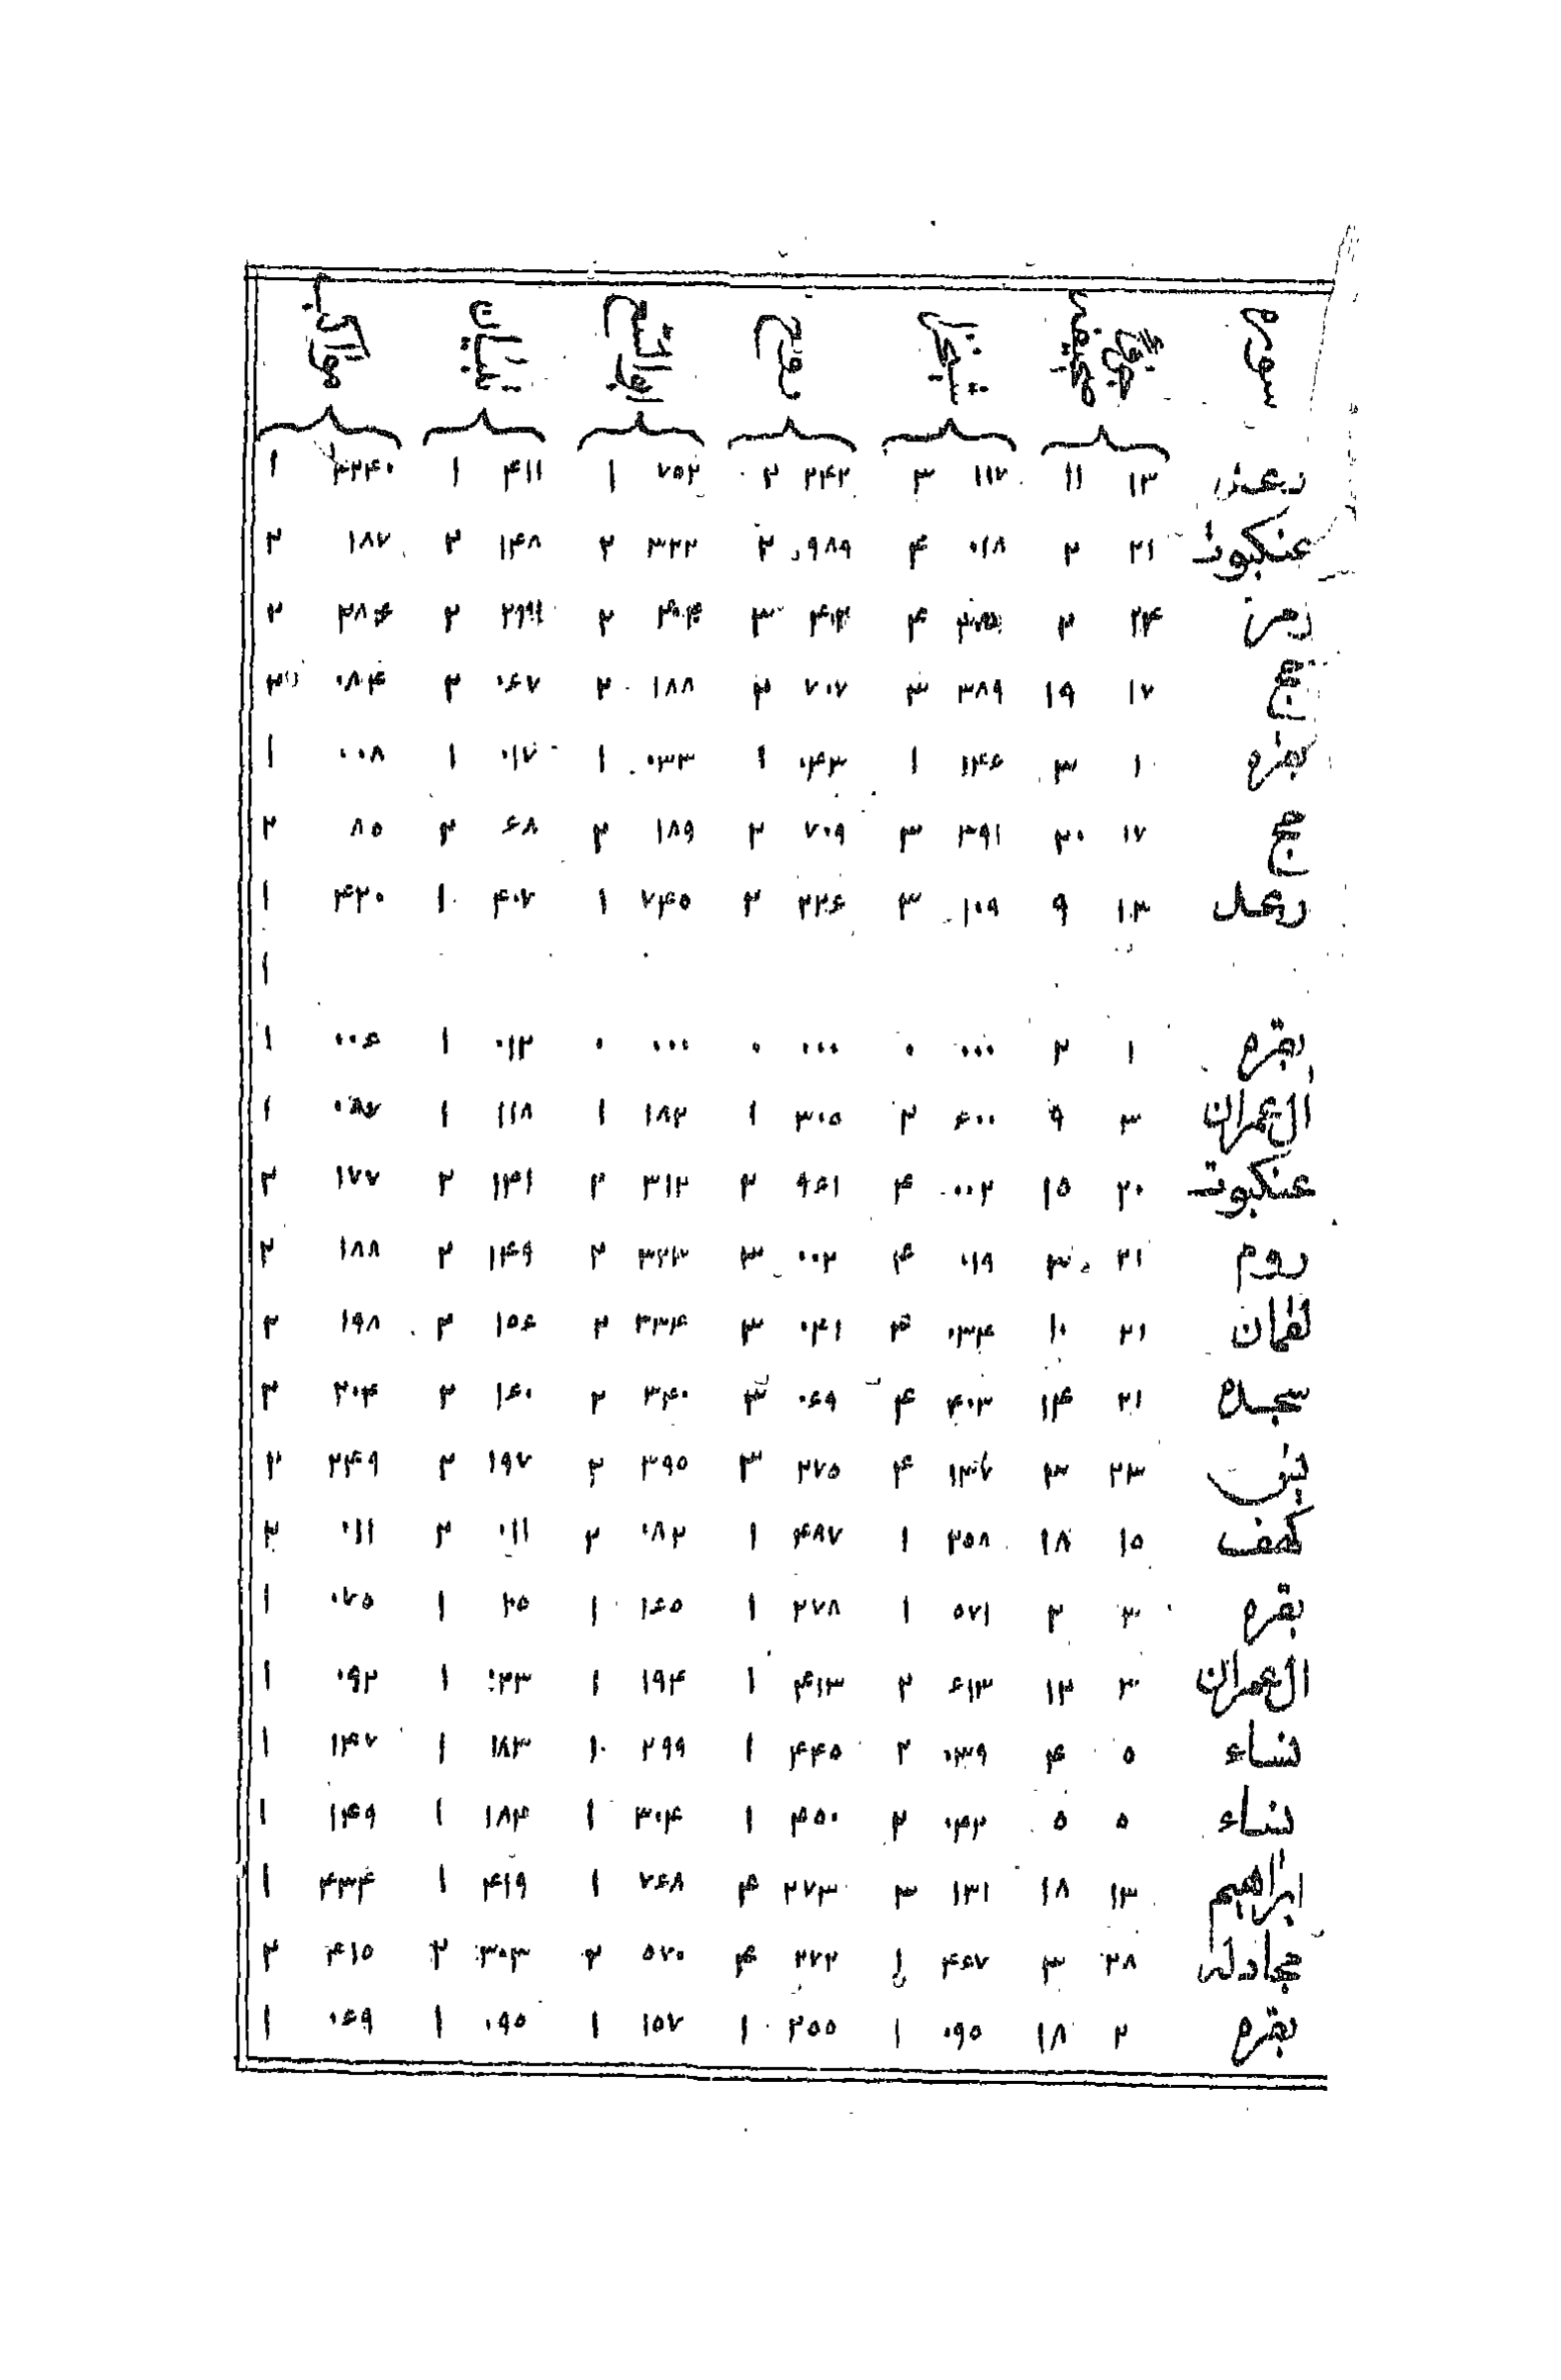 سوره
رعد ۱۳ ۱۱ ۱۱۷ ۳ ۲۴۲ ۲ ۷۵۲ ۱ ۴۱۱ ۱ ۱
عنکبوت ۲۱ ۲ ۰۱۸ ۴ ۹۸۹ ۲ ۳۲۲ ۲ ۱۴۸ ۲ ۱۸۷ ۲
زمر ۲۴ ۲ ۴ ۳ ۲ ۲ ۲
حج ۱۷ ۱۹ ۳۸۹ ۳ ۷۰۷ ۲ ۱۸۸ ۲ ۰۶۷ ۲ ۰۸۴ ۲
بقره ۱ ۳ ۱۴۶ ۱ ۰۴۳ ۱ ۰۳۳ ۱ ۰۱۷ ۱ ۰۰۸ ۱
حج ۱۷ ۲۰ ۳۹۱ ۳ ۷۰۹ ۲ ۱۸۹ ۲ ۶۸ ۲ ۸۵ ۲
رعد ۱۳ ۹ ۱۰۹ ۳ ۲۲۶ ۲ ۷۴۵ ۱ ۴۰۷ ۱ ۴۲۰ ۱
۱
بقره ۱ ۲ ۰۰۰ ۰ ۰۰۰ ۰ ۰۰۰ ۰ ۰۱۲ ۱ ۰۰۶ ۱
ال عمران ۳ ۹ ۶۰۰ ۲ ۳۰۵ ۱ ۱۸۲ ۱ ۱۱۸ ۱ ۱
عنکبوت ۲۰ ۱۵ ۰۰۲ ۴ ۹۶۱ ۲ ۳۱۲ ۲ ۱۴۱ ۲ ۱۷۷ ۲
روم ۲۱ ۳ ۰۱۹ ۴ ۰۰۲ ۳ ۳۲۳ ۲ ۱۴۹ ۲ ۱۸۸ ۲
لقمان ۲۱ ۱۰ ۰۳۴ ۴ ۰۴۱ ۳ ۳۳۴ ۲ ۱۵۶ ۲ ۱۹۸ ۲
سجده ۲۱ ۱۴ ۴۰۳ ۴ ۰۶۹ ۳ ۳۴۰ ۲ ۱۶۰ ۲ ۲۰۴ ۲
یس ۲۳ ۳ ۴ ۲۷۵ ۳ ۳۹۵ ۲ ۱۹۷ ۲ ۲۴۹ ۲
کهف ۱۵ ۱۸ ۲۵۸ ۱ ۴۸۷ ۱ ۰۸۲ ۲ ۰۱۱ ۲ ۰۱۱ ۲
بقره ۳ ۲ ۵۷۱ ۱ ۲۷۸ ۱ ۱۶۵ ۱ ۲۵ ۱ ۰۷۵ ۱
ال عمران ۳ ۱۲ ۶۱۳ ۲ ۴۱۳ ۱ ۱۹۴ ۱ ۰۲۳ ۱ ۰۹۲ ۱
نساء ۵ ۴ ۰۳۹ ۲ ۴۴۵ ۱ ۲۹۹ ۱ ۱۸۳ ۱ ۱۴۷ ۱
نساء ۵ ۵ ۰۴۲ ۲ ۴۵۰ ۱ ۳۰۴ ۱ ۱۸۴ ۱ ۱۴۹ ۱
ابراهیم ۱۳ ۱۸ ۱۳۱ ۳ ۲۷۳ ۴ ۷۶۸ ۱ ۴۱۹ ۱ ۴۳۴ ۱
مجادله ۲۸ ۳ ۴۶۷ ۱ ۲۷۲ ۴ ۵۷۰ ۲ ۳۰۳ ۲ ۴۱۵ ۲
بقره ۲ ۱۸ ۰۹۵ ۱ ۲۵۵ ۱ ۱۵۷ ۱ ۰۹۵ ۱ ۰۶۹ ۱